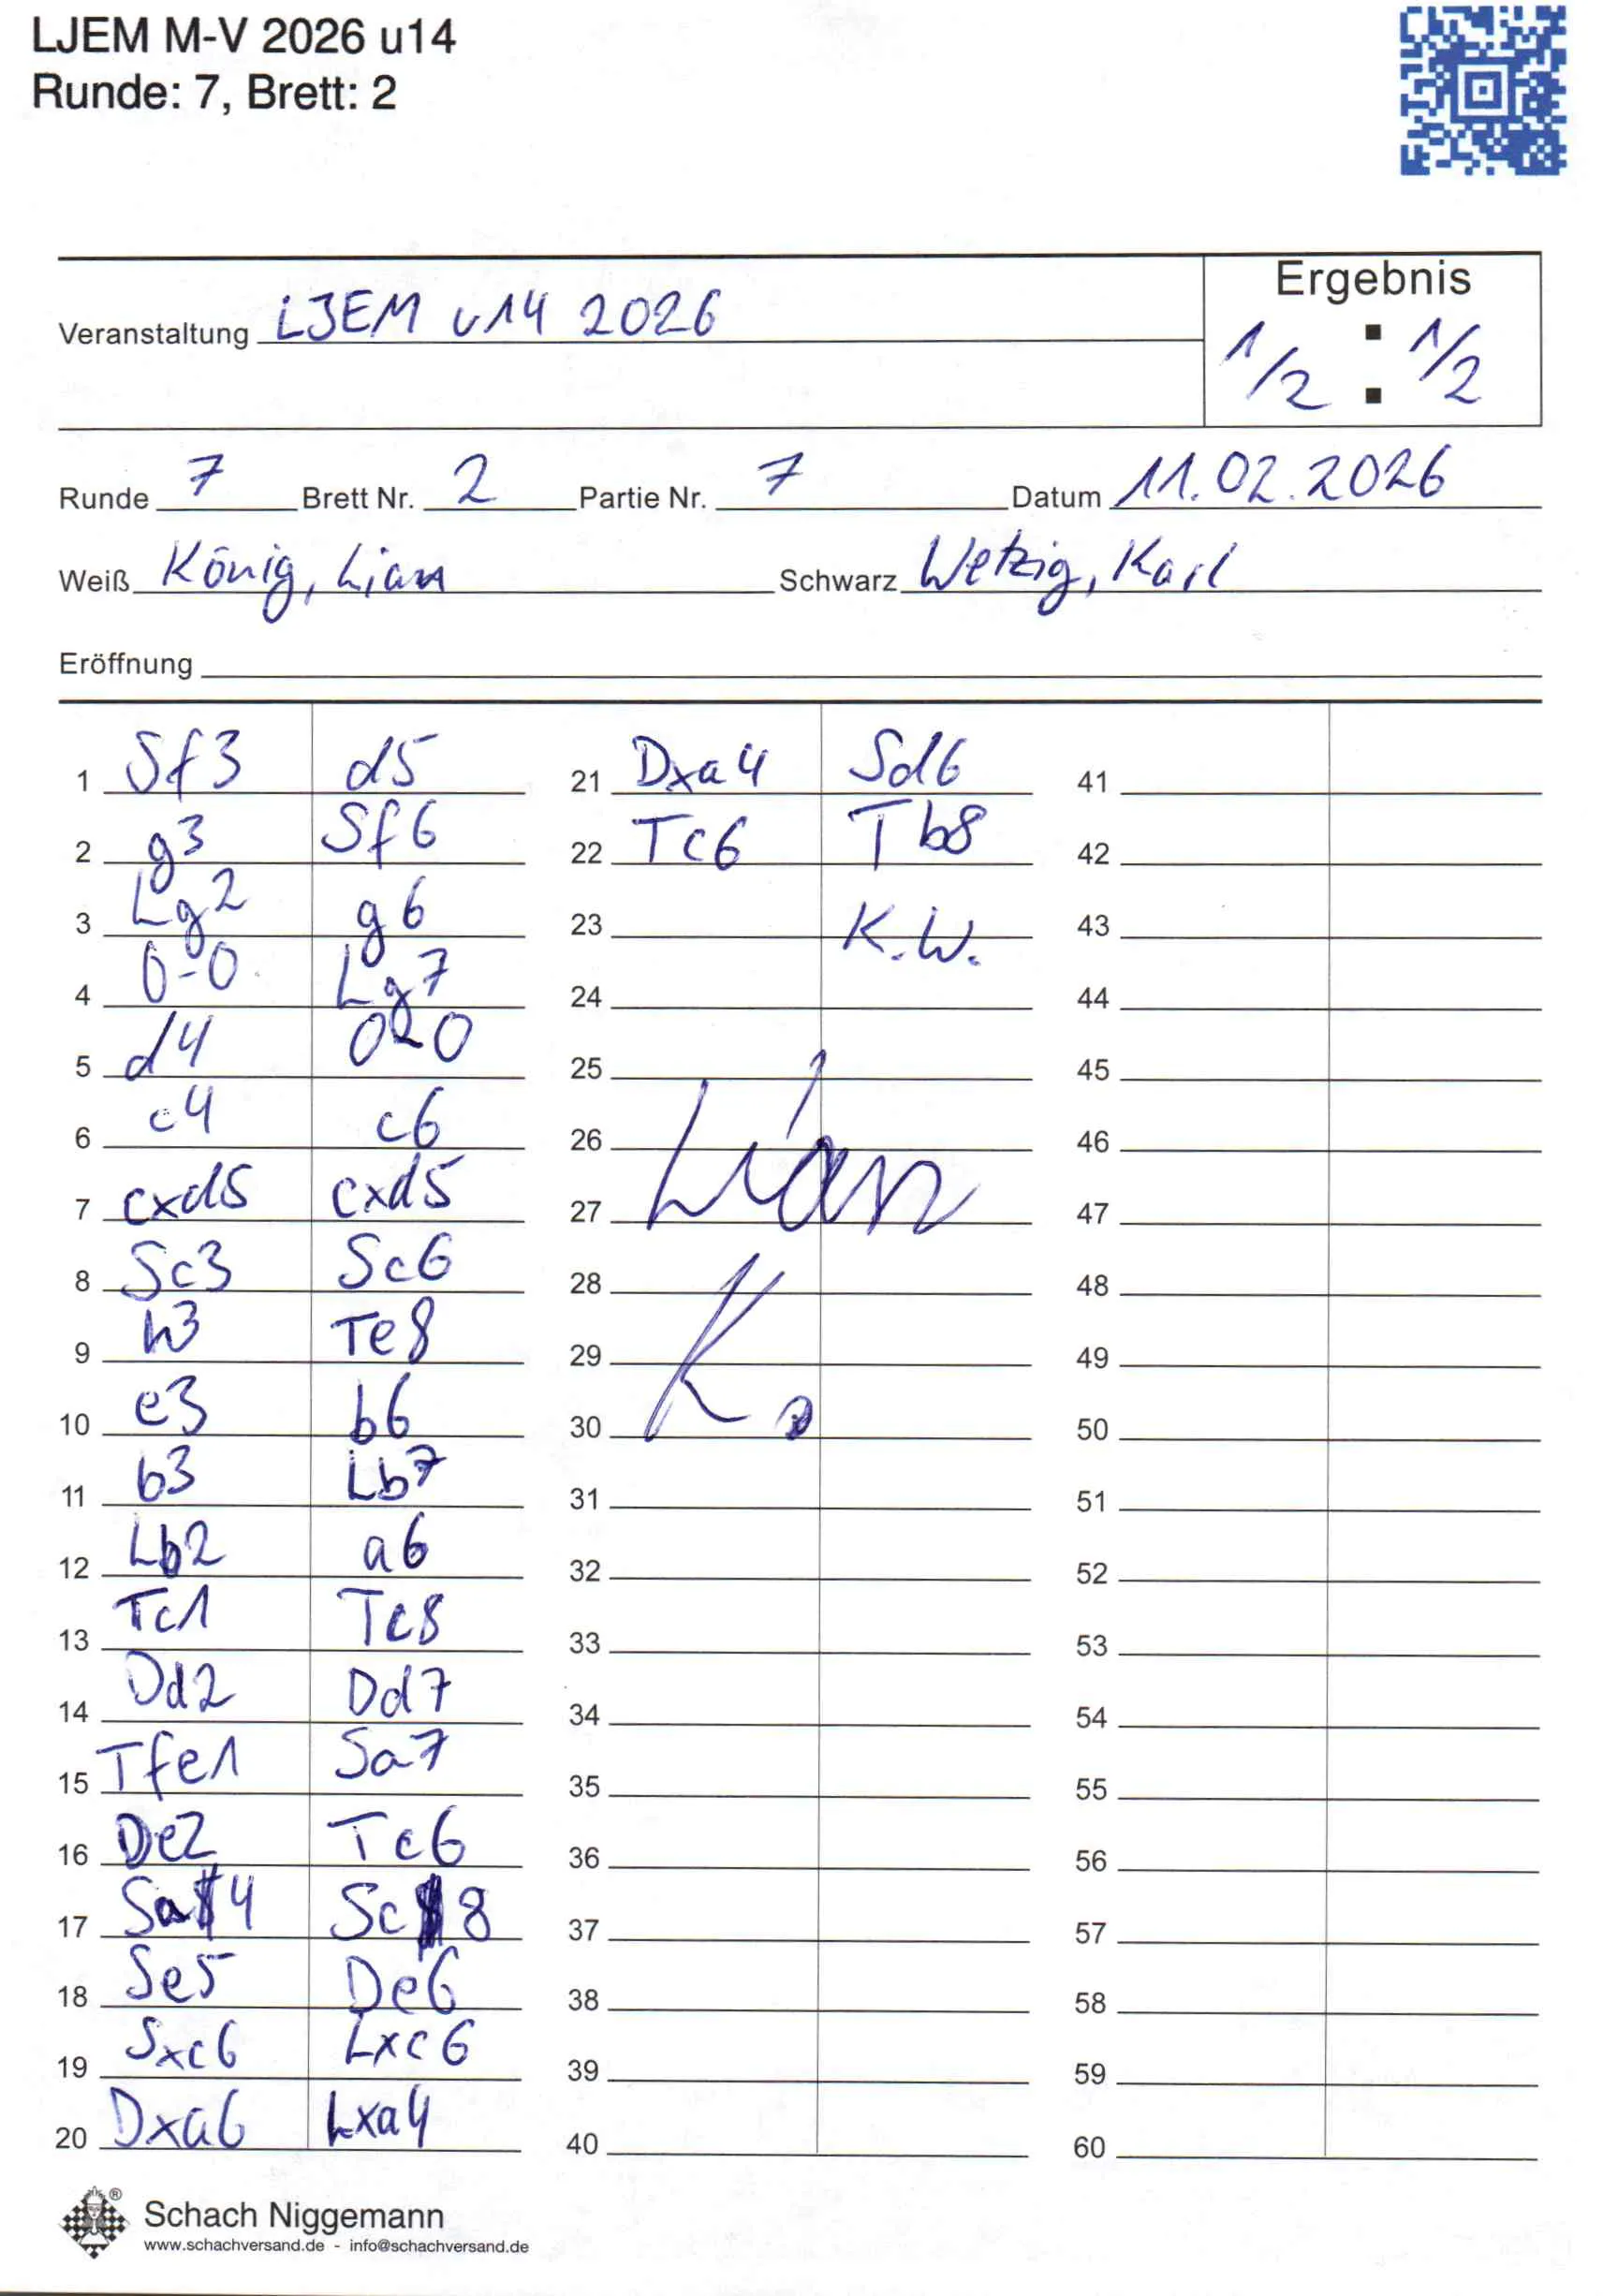 LJEM M-V 2026 u14
Runde: 7, Brett: 2
Ergebnis
Veranstaltung LJEM u14 2026
1/2 : 1/2
Runde 7 Brett Nr. 2 Partie Nr. 7 Datum 11.02.2026
Weiß König, Lian Schwarz Wetzig, Karl
Eröffnung
1 Sf3 d5
2 g3 Sf6
3 Lg2 g6
4 0-0 Lg7
5 d4 0-0
6 c4 c6
7 cxd5 cxd5
8 Sc3 Sc6
9 h3 Te8
10 e3 b6
11 b3 Lb7
12 Lb2 a6
13 Tc1 Tc8
14 Dd2 Dd7
15 Tfe1 Sa7
16 De2 Tc6
17 Sa4 Sc8
18 Se5 De6
19 Sxc6 Lxc6
20 Dxa6 Lxa4
21 Dxa4 Sd6
22 Tc6 Tb8
23 K.W.
24
25
26
27 Lian
28
29
30 K.
31
32
33
34
35
36
37
38
39
40
41
42
43
44
45
46
47
48
49
50
51
52
53
54
55
56
57
58
59
60
®
Schach Niggemann
www.schachversand.de - info@schachversand.de